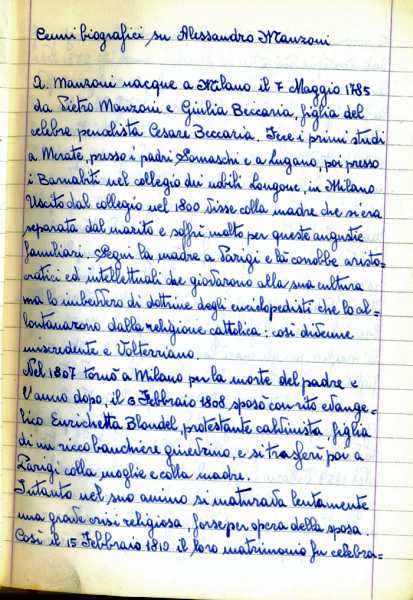 Cenni biografici su Alessandro Manzoni
A. Manzoni nacque a Milano il 7 Maggio 1785
da Pietro Manzoni e Giulia Beccaria, figlia del
celebre penalista Cesare Beccaria. Fece i primi studi
a Merate, presso i padri Somaschi e a Lugano, poi presso
i Barnabiti nel collegio dei nobili Longone, in Milano
Uscito dal collegio nel 1800 visse colla madre che si era
separata dal marito e soffrì molto per queste angustie
familiari. Seguì la madre a Parigi e là conobbe aristo=
cratici ed intellettuali che giovarono alla sua cultura
ma lo imbevvero di dottrine degli enciclopedisti che lo al=
lontanarono dalla religione cattolica: così divenne
miscredente e Volterriano.
Nel 1807 tornò a Milano per la morte del padre e
l'anno dopo, il 6 Febbraio 1808 sposò con rito evange=
lico Enrichetta Blondel, protestante calvinista, figlia
di un ricco banchiere ginevrino, e si trasferì poi a
Parigi colla moglie e colla madre.
Intanto nel suo animo si maturava lentamente
una grave crisi religiosa, forse per opera della sposa.
Così il 15 Febbraio 1810 il loro matrimonio fu celebra=